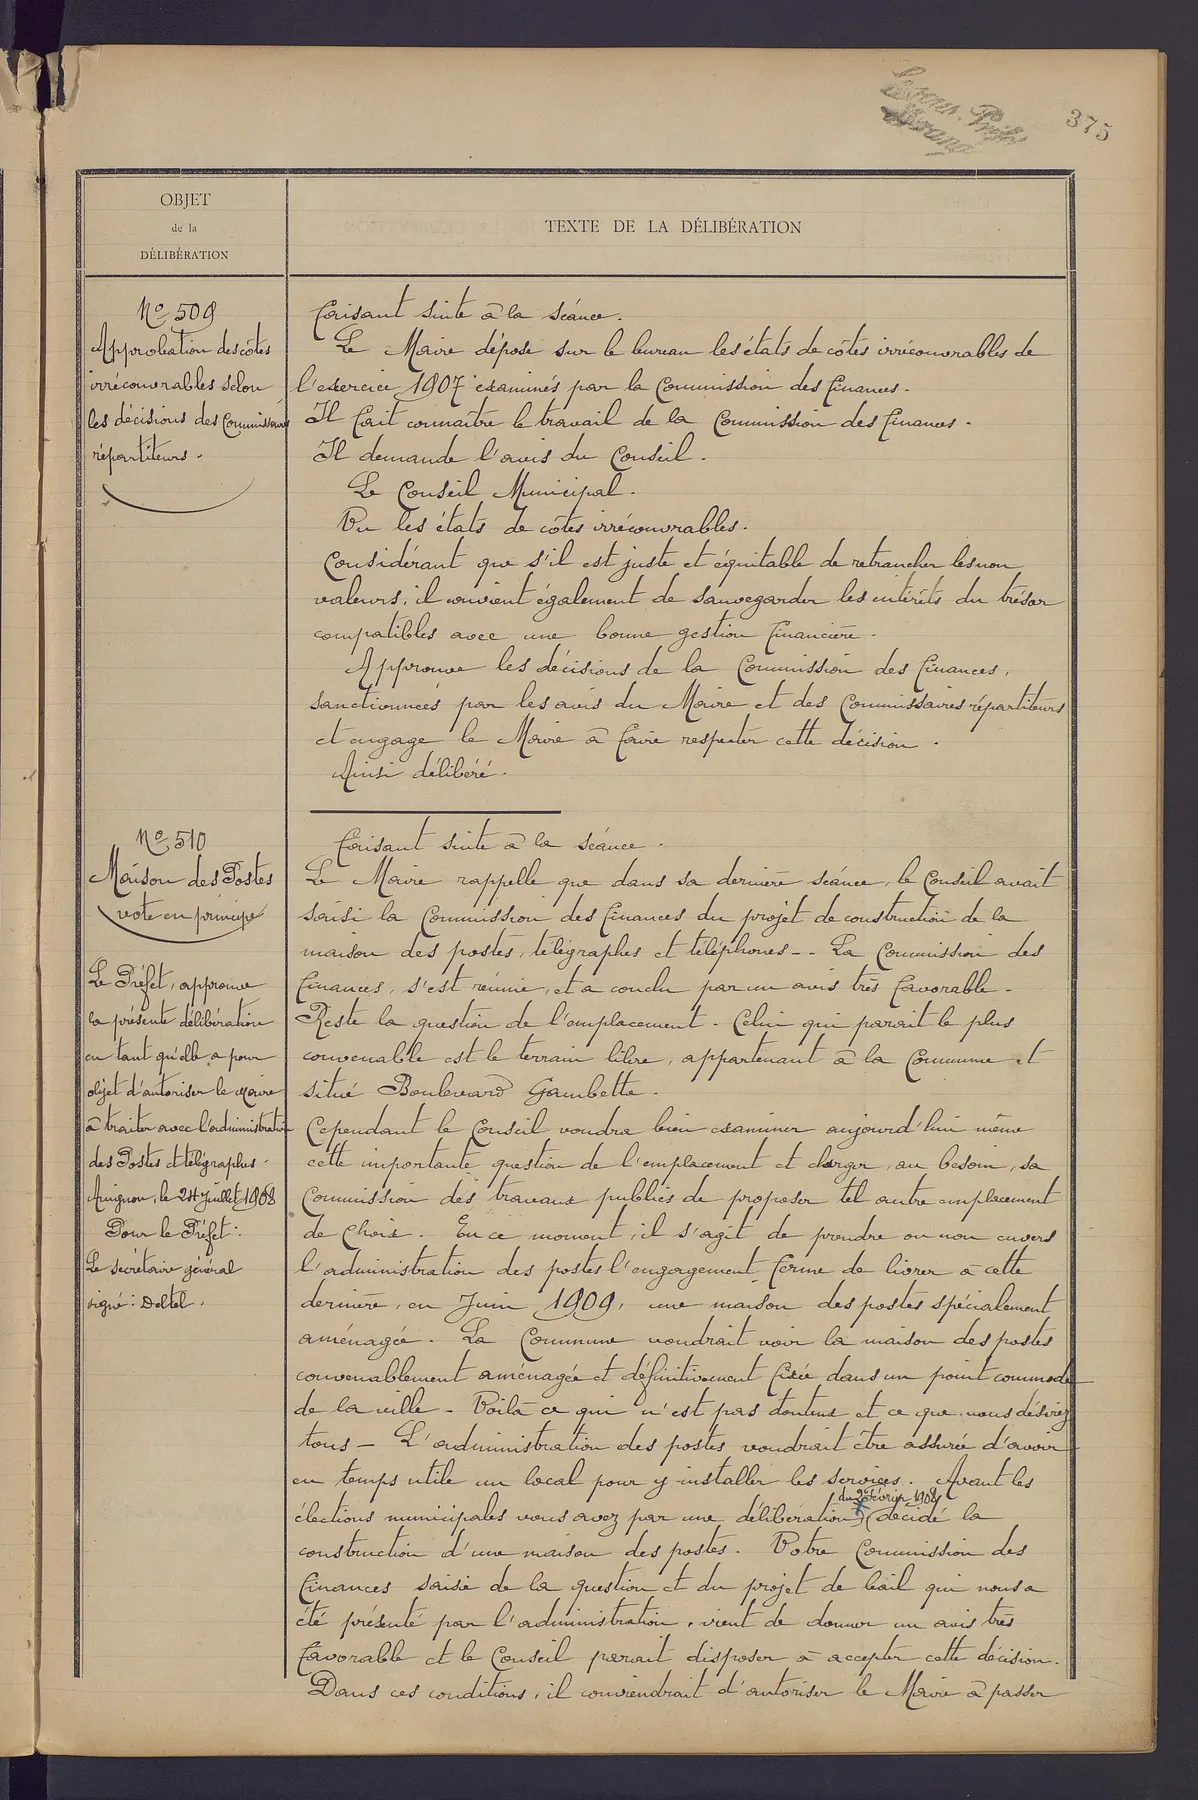 Le sous-Préfet
375
OBJET
de la
DÉLIBÉRATION
TEXTE DE LA DÉLIBÉRATION
No 509
Approbation des côtes
irrécouvrables selon
les décisions des Commissaires
répartiteurs.
Faisant suite à la séance.
Le Maire dépose sur le bureau les états de côtes irrécouvrables de
l'exercice 1907 examinés par la Commission des finances.
Il fait connaître le travail de la Commission des finances.
Il demande l'avis du Conseil.
Le Conseil Municipal.
Vu les états de côtes irrécouvrables.
Considérant que s'il est juste et équitable de retrancher les non
valeurs, il convient également de sauvegarder les intérêts du trésor
compatibles avec une bonne gestion financière.
Approuve les décisions de la Commission des finances,
sanctionnées par les avis du Maire et des Commissaires répartiteurs
et engage le Maire à faire respecter cette décision.
Ainsi délibéré.
No 510
Maison des Postes
vote en principe
Le Préfet, approuve
la présente délibération
en tant qu'elle a pour
objet d'autoriser le Maire
à traiter avec l'administration
des Postes et télégraphes.
Avignon, le 24 Juillet 1908
Pour le Préfet:
Le secrétaire général
signé: Deltel.
Faisant suite à la séance.
Le Maire rappelle que dans sa dernière séance, le Conseil avait
saisi la Commission des finances du projet de construction de la
maison des postes, télégraphes et téléphones-. La Commission des
finances, s'est réunie, et a conclu par un avis très favorable.
Reste la question de l'emplacement. Celui qui parait le plus
convenable est le terrain libre, appartenant à la Commune et
situé Boulevard Gambetta.
Cependant le Conseil voudra bien examiner aujourd'hui même
cette importante question de l'emplacement et charger, au besoin, sa
Commission des travaux publics de proposer tel autre emplacement
de choix. En ce moment, il s'agit de prendre ou non envers
l'administration des postes l'engagement ferme de livrer à cette
dernière, en Juin 1909, une maison des postes spécialement
aménagée. La Commune voudrait voir la maison des postes
convenablement aménagée et définitivement fixée dans un point commode
de la ville - Voilà ce qui n'est pas douteux et ce que vous désirez
tous - L'administration des postes voudrait être assurée d'avoir
en temps utile un local pour y installer les services. Avant les
élections municipales vous avez par une délibération (du 2 février 1908) décidé la
construction d'une maison des postes. Votre Commission des
finances saisie de la question et du projet de bail qui nous a
été présenté par l'administration, vient de donner un avis très
favorable et le Conseil parait disposer à accepter cette décision.
Dans ces conditions, il conviendrait d'autoriser le Maire à passer